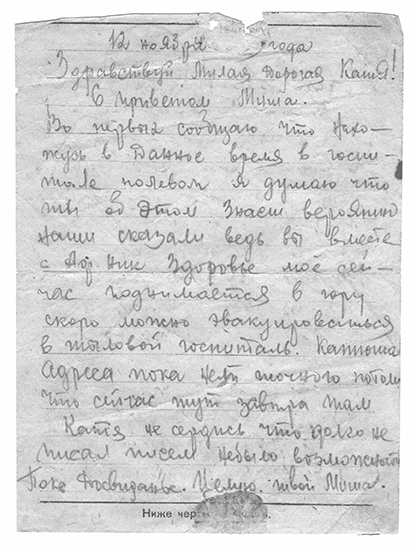 12 ноября года
Здравствуй Милая Дорогая Катя!
С приветом Миша.
Во первых сообщаю что нахо-
жусь в Данное время в госпи-
тале полевом я думаю что
ты об этом знаеш вероятно
наши сказали ведь вы вместе
с Ник Здоровье моё сей-
час поднимается в гору
скоро можно эвакуироваться
в тыловой госпиталь. Катюша
Адреса пока нету точного потому
что сейчас тут завтра там
Катя не сердись что долго не
писал писем небыло возможности
Пока Досвиданье. Целую твой Миша.
Ниже